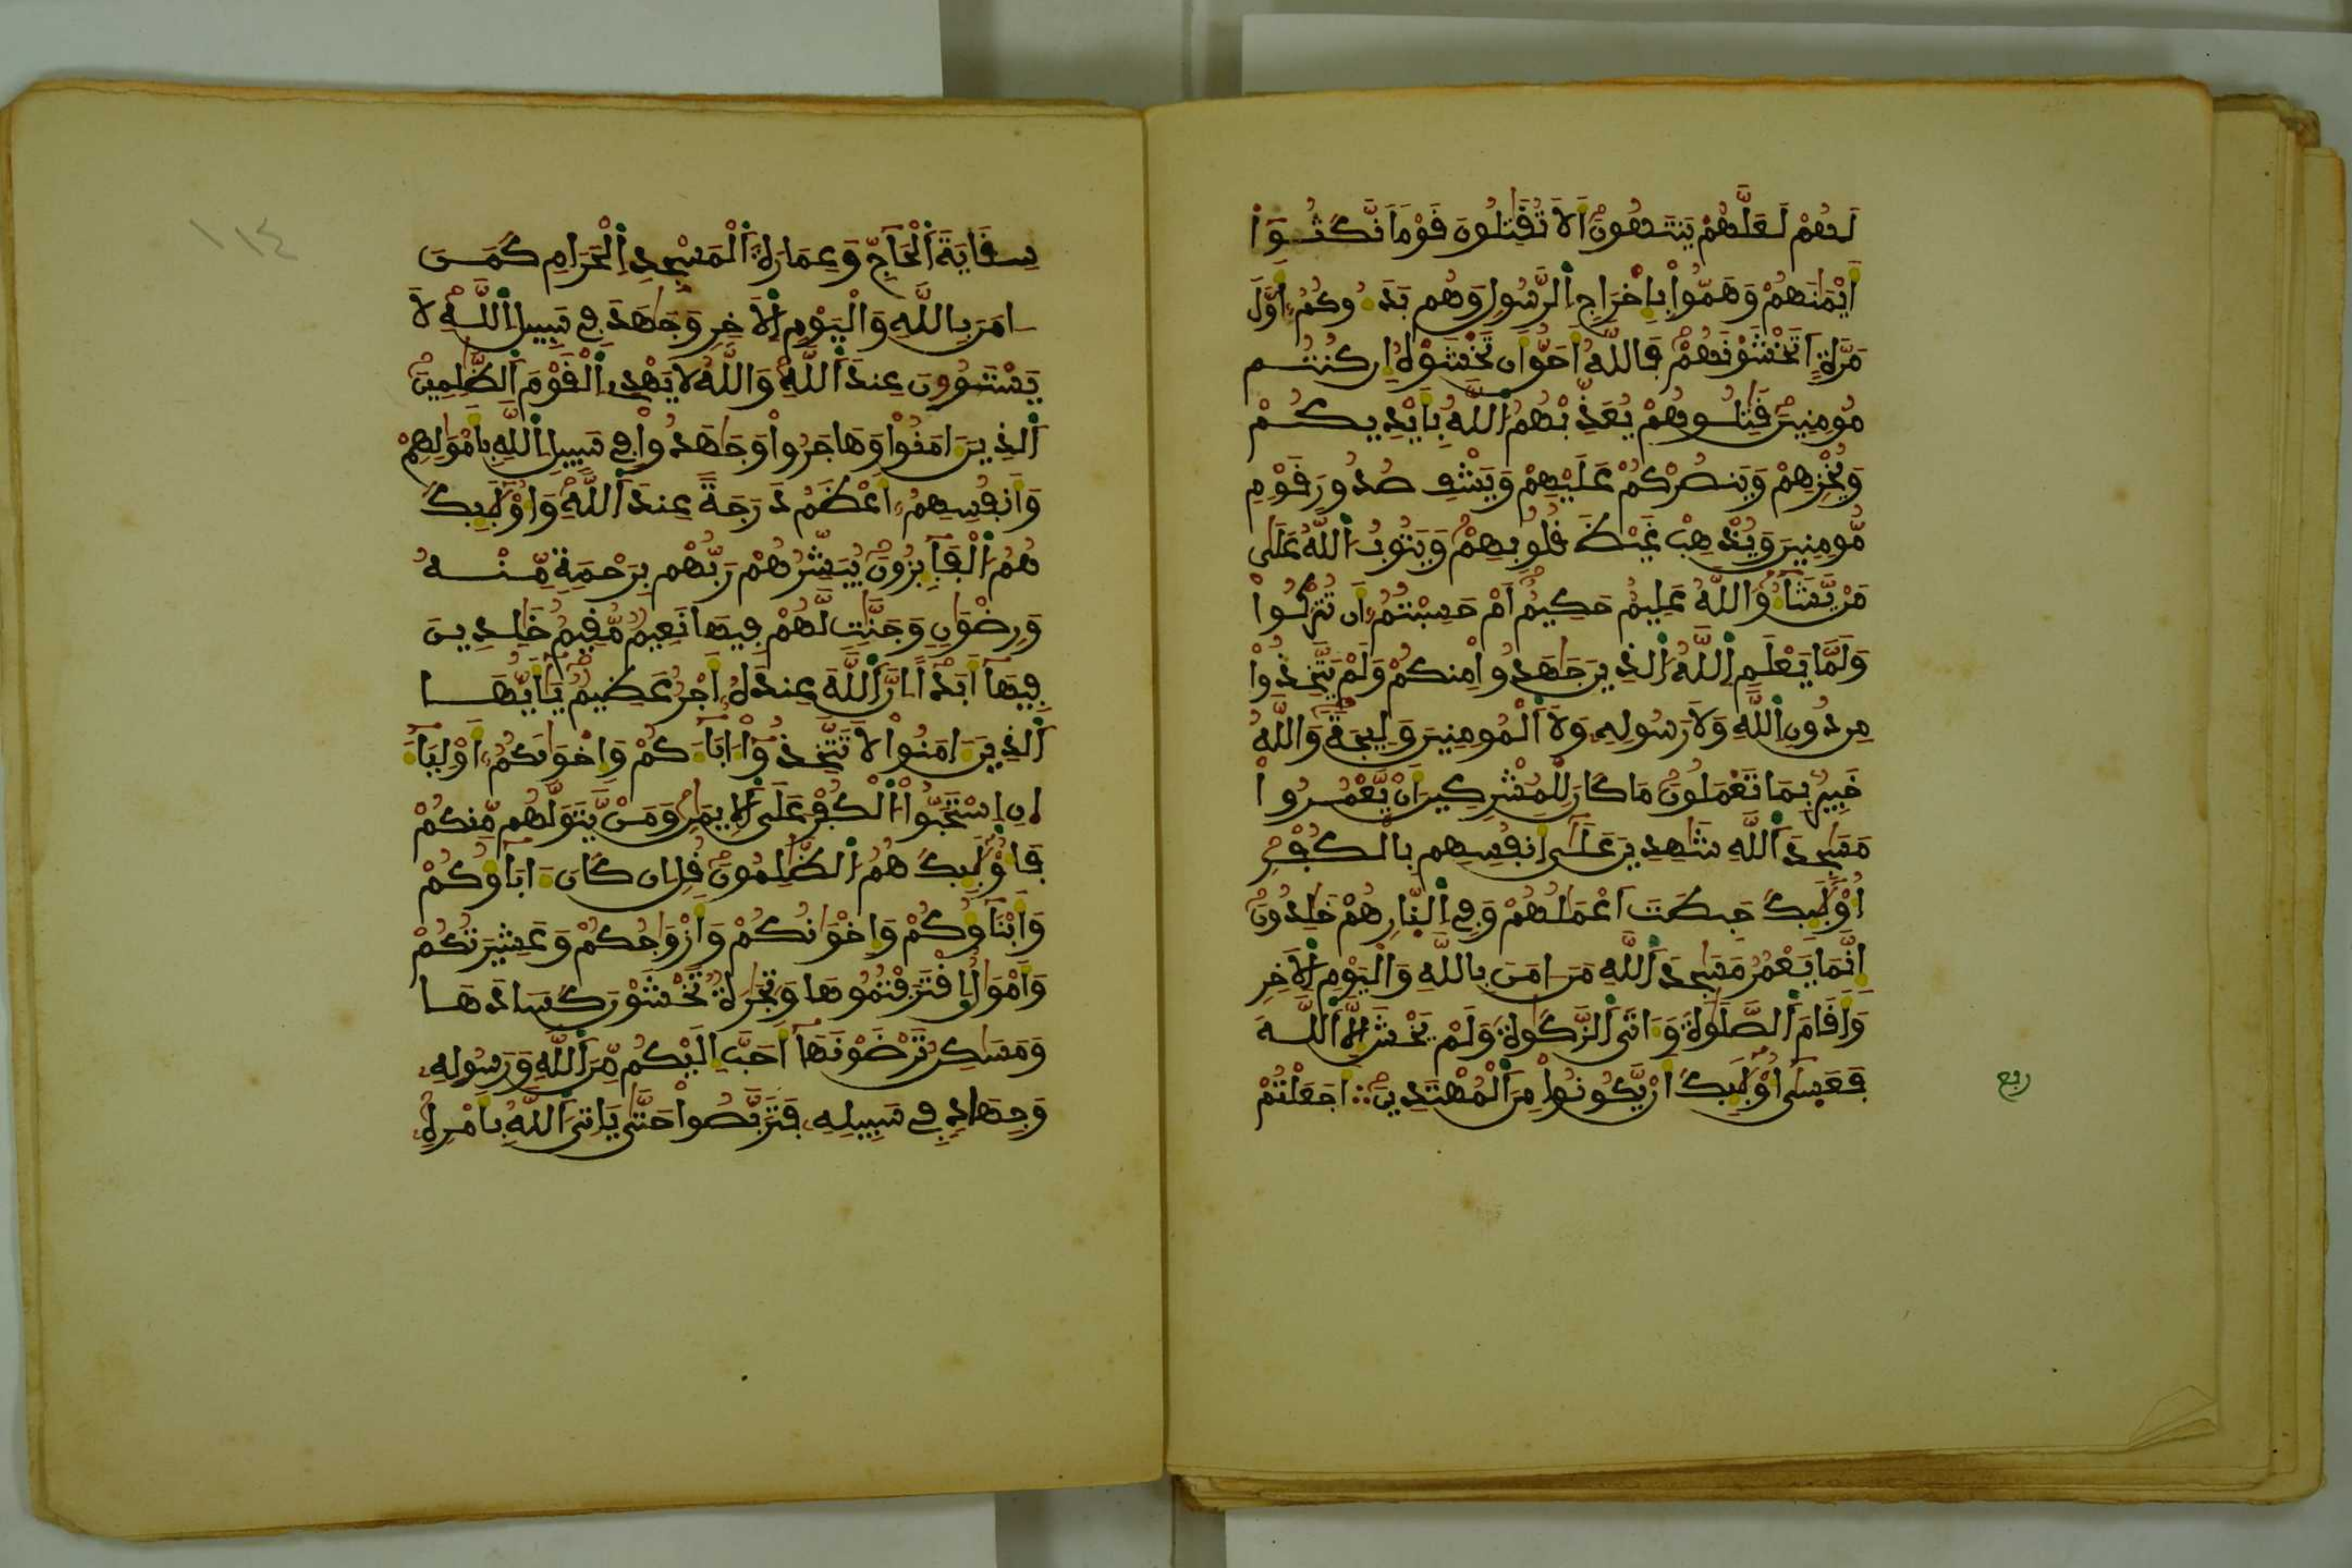 لَهُمْ لَعَلَّهُمْ يَنتَهُونَ أَلاَ تُقَٰتِلُونَ قَوْماً نَّكَثُوٓاْ
أَيْمَٰنَهُمْ وَهَمُّواْ بِإِخْرَاجِ اِ۬لرَّسُولِ وَهُم بَدَءُوكُمُۥٓ أَوَّلَ
مَرَّةٍ اَتَخْشَوْنَهُمْ فَاللَّهُ أَحَقُّ أَن تَخْشَوْهُ إِن كُنتُم
مُّومِنِينَ قَٰتِلُوهُمْ يُعَذِّبْهُمُ اُ۬للَّهُ بِأَيْدِيكُمْ
وَيُخْزِهِمْ وَيَنصُرْكُمْ عَلَيْهِمْ وَيَشْفِ صُدُورَ قَوْمٍ
مُّومِنِينَ وَيُذْهِبْ غَيْظَ قُلُوبِهِمْ وَيَتُوبُ اُ۬للَّهُ عَلَىٰ
مَنْ يَّشَآءُ وَاللَّهُ عَلِيمٌ حَكِيمٌ اَمْ حَسِبْتُمُۥٓ أَن تُتْرَكُواْ
وَلَمَّا يَعْلَمِ اِ۬للَّهُ اُ۬لذِينَ جَٰهَدُواْ مِنكُمْ وَلَمْ يَتَّخِذُواْ
مِن دُونِ اِ۬للَّهِ وَلاَ رَسُولِهِۦ وَلاَ اَ۬لْمُومِنِينَ وَلِيجَةً وَاللَّهُ
خَبِيرٌ بِمَا تَعْمَلُونَ مَا كَانَ لِلْمُشْرِكِينَ أَنْ يَّعْمُرُواْ
مَسَٰجِدَ اَ۬للَّهِ شَٰهِدِينَ عَلَىٰٓ أَنفُسِهِم بِالْكُفْرِ
أُوْلَٰٓئِكَ حَبِطَتَ اَعْمَٰلُهُمْ وَفِي اِ۬لنّارِ هُمْ خَٰلِدُونَ
إِنَّمَا يَعْمُرُ مَسَٰجِدَ اَ۬للَّهِ مَنَ اٰمَنَ بِاللَّهِ وَالْيَوْمِ اِ۬لاَخِرِ
وَأَقَامَ اَ۬لصَّلَوٰةَ وَءَاتَى اَ۬لزَّكَوٰةَ وَلَمْ يَخْشَ إِلاَّ اَ۬للَّهَ
فَعَسَىٰٓ أُوْلَٰٓئِكَ أَنْ يَّكُونُواْ مِنَ اَ۬لْمُهْتَدِينَ ∴ أَجَعَلْتُمْ
ربع
١١٤
سِقَايَةَ اَ۬لْحَآجِّ وَعِمَارَةَ اَ۬لْمَسْجِدِ اِ۬لْحَرَامِ كَمَنَ
اٰمَنَ بِاللَّهِ وَالْيَوْمِ اِ۬لاَخِرِ وَجَٰهَدَ فِي سَبِيلِ اِ۬للَّهِ لاَ
يَسْتَوُۥنَ عِندَ اَ۬للَّهِ وَاللَّهُ لاَ يَهْدِي اِ۬لْقَوْمَ اَ۬لظَّٰلِمِينَ
اَ۬لذِينَ ءَامَنُواْ وَهَاجَرُواْ وَجَٰهَدُواْ فِي سَبِيلِ اِ۬للَّهِ بِأَمْوَٰلِهِمْ
وَأَنفُسِهِمُۥٓ أَعْظَمُ دَرَجَةً عِندَ اَ۬للَّهِ وَأُوْلَٰٓئِكَ
هُمُ اُ۬لْفَآئِزُونَ يُبَشِّرُهُمْ رَبُّهُم بِرَحْمَةٍ مِّنْهُ
وَرِضْوَٰنٍ وَجَنَّٰتٍ لَّهُمْ فِيهَا نَعِيمٌ مُّقِيمٌ خَٰلِدِينَ
فِيهَآ أَبَداً اِنَّ اَ۬للَّهَ عِندَهُۥٓ أَجْرٌ عَظِيمٌ يَٰٓأَيُّهَا
اَ۬لذِينَ ءَامَنُواْ لاَ تَتَّخِذُوٓاْ ءَابَآءَكُمْ وَإِخْوَٰنَكُمُۥٓ أَوْلِيَآءَ
اِنِ اِ۪سْتَحَبُّواْ اُ۬لْكُفْرَ عَلَى اَ۬لاِيمَٰنِ وَمَنْ يَّتَوَلَّهُم مِّنكُمْ
فَأُوْلَٰٓئِكَ هُمُ اُ۬لظَّٰلِمُونَ قُلِ اِن كَانَ ءَابَآؤُكُمْ
وَأَبْنَآؤُكُمْ وَإِخْوَٰنُكُمْ وَأَزْوَٰجُكُمْ وَعَشِيرَتُكُمْ
وَأَمْوَٰلٌ اِ۪قْتَرَفْتُمُوهَا وَتِجَٰرَةٌ تَخْشَوْنَ كَسَادَهَا
وَمَسَٰكِنُ تَرْضَوْنَهَآ أَحَبَّ إِلَيْكُم مِّنَ اَ۬للَّهِ وَرَسُولِهِۦ
وَجِهَادٍ فِي سَبِيلِهِۦ فَتَرَبَّصُواْ حَتَّىٰ يَاتِيَ اَ۬للَّهُ بِأَمْرِهِۦ